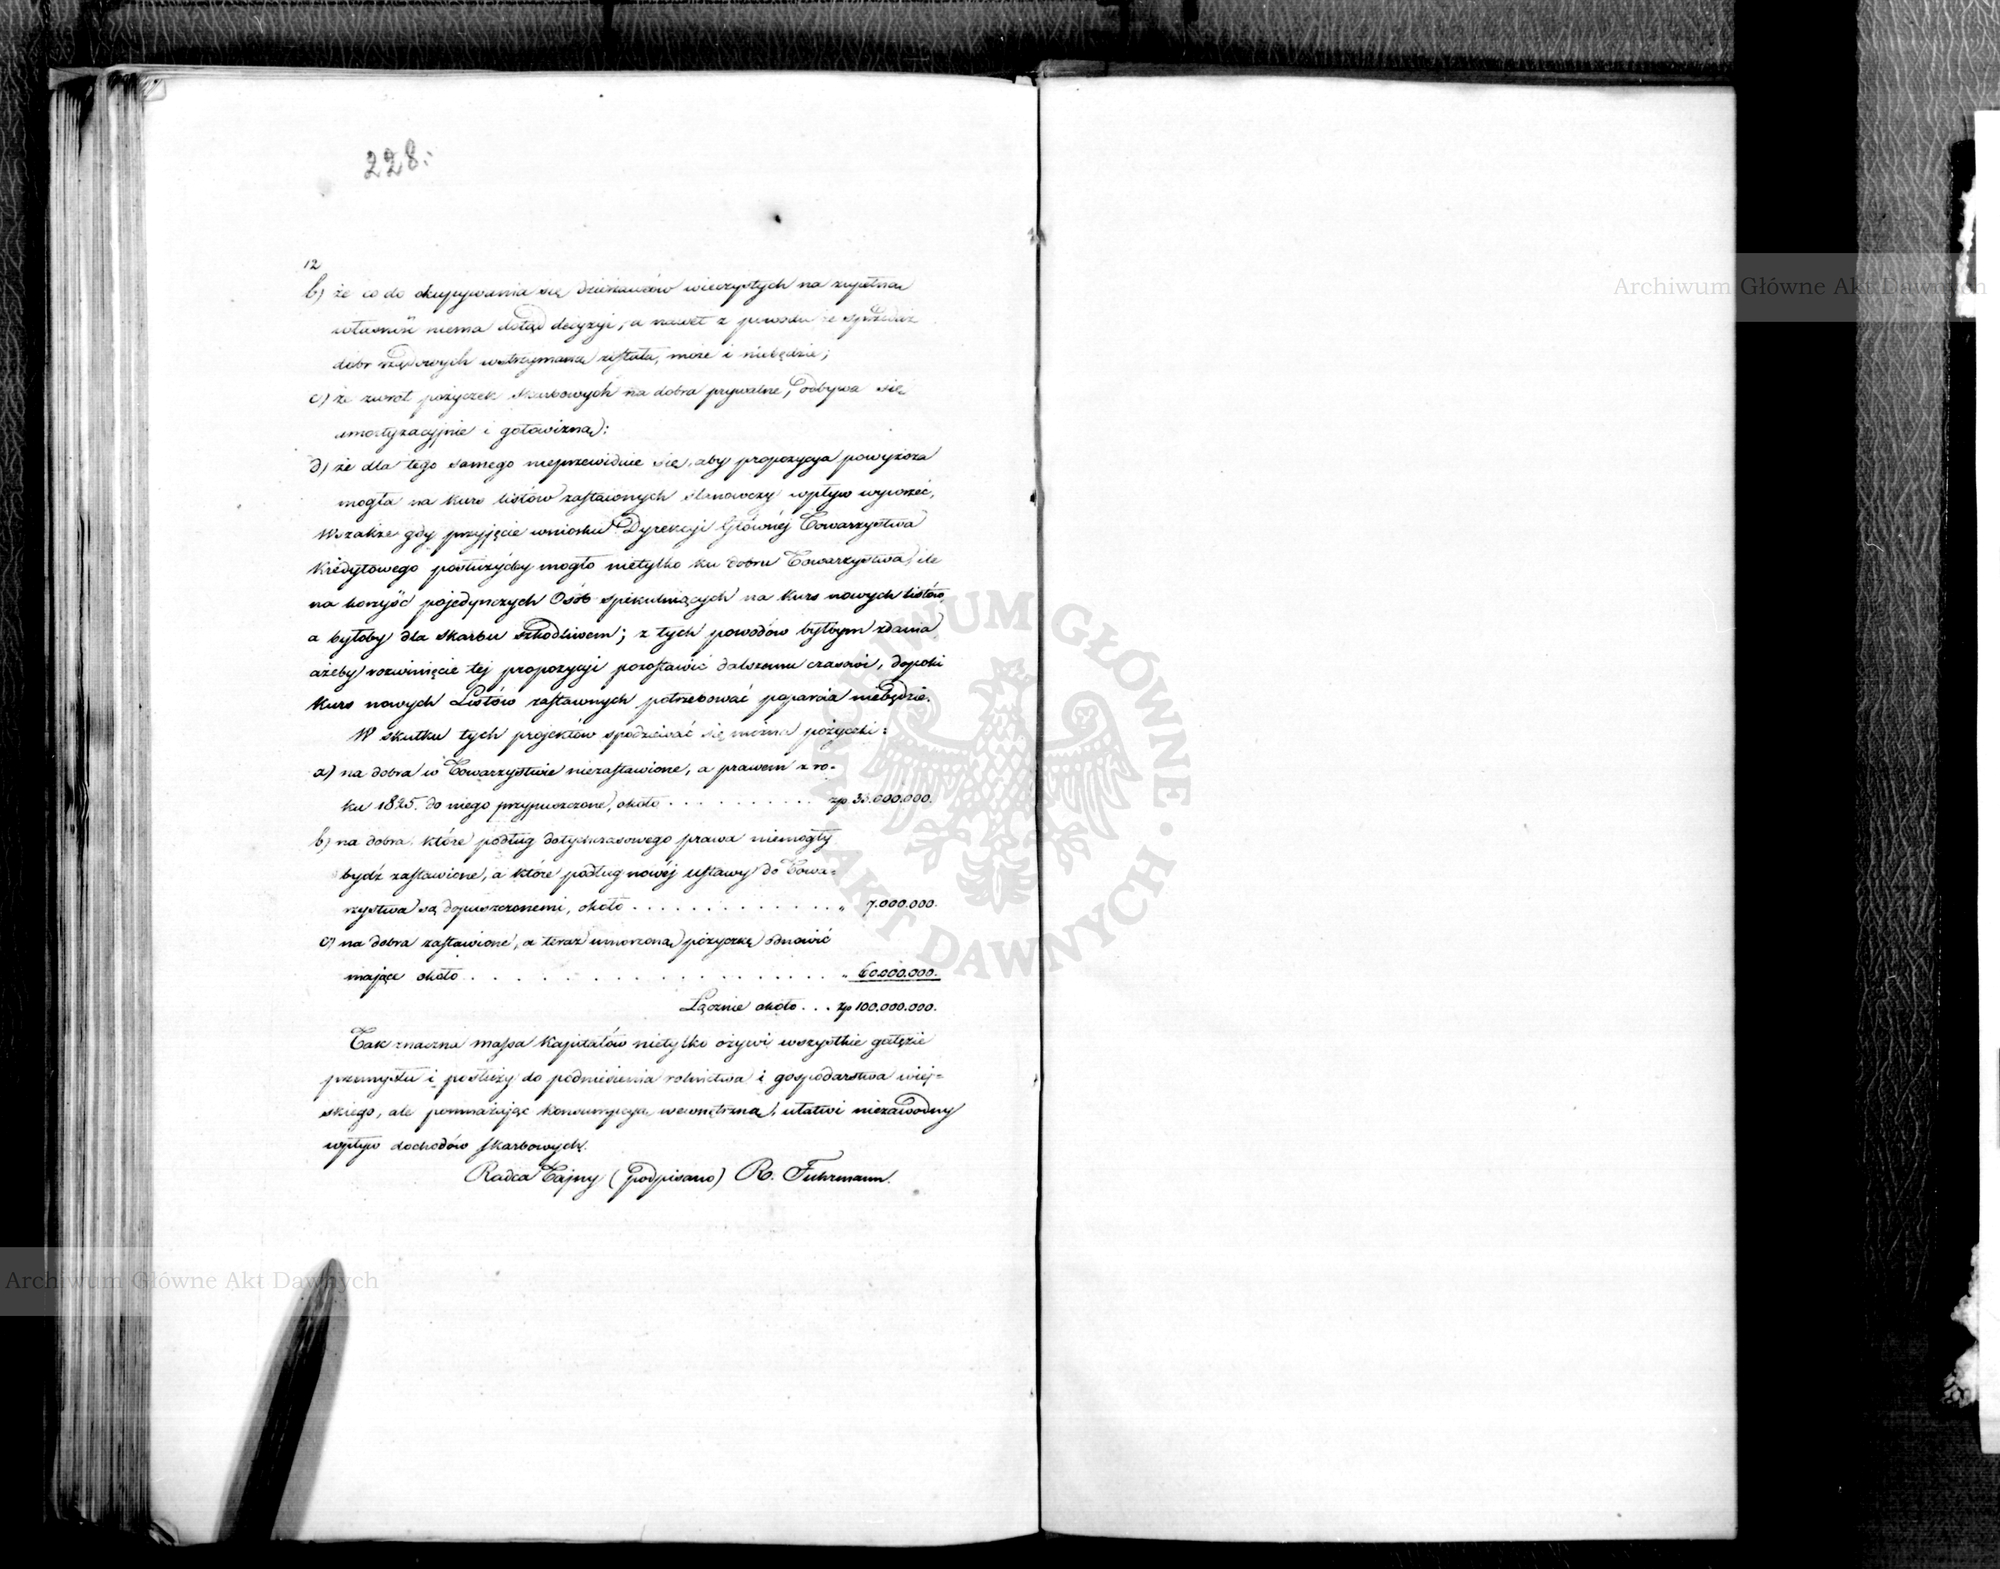 228.
12
b) że co do okupywania się dzierżawców wieczystych na zupełną
własność niema dotąd decyzyi, a nawet z powodu że sprzedaż
dóbr rządowych wstrzymaną została, może i niebędzie;
c) że zwrot pożyczek skarbowych na dobra prywatne, odbywa się
umortyzacyjnie i gotowizną;
d) że dla tego samego nieprzewiduie się, aby propozycya powyższa
mogła na kurs listów zastawnych stanowczy wpływ wywrzeć,
Wszakże gdy przyjęcie wniosku Dyrekcyi Głównéj Towarzystwa
Kredytowego posłużyćby mogło nietylko ku dobru Towarzystwa, ile
na korzyść pojedynczych Osób spekulujących na kurs nowych listów,
a byłoby dla Skarbu szkodliwem; z tych powodów byłbym zdania
ażeby rozwinięcie tej propozycyi pozostawić dalszemu czasowi, dopóki
kurs nowych Listów zastawnych potrzebować poparcia niebędzie.
W skutku tych projektów spodziewać się można pożyczki:
a) na dobra w Towarzystwie niezastawione, a prawem z ro-
ku 1825. do niego przypuszczone, około . . . . . . . . . . zp. 33.000.000.
b) na dobra które podług dotychczasowego prawa niemogły
bydź zastawione, a które podług nowéj ustawy do Towa-
rzystwa są dopuszczonemi, około . . . . . . . . . . . . . „ 7.000.000.
c) na dobra zastawione, a teraz umorzoną pożyczkę odnowić
mające około . . . . . . . . . . . . . . . . . „ 60.000.000.
Łącznie około . . . zp 100.000.000.
Tak znaczna massa Kapitałów nietylko ożywi wszystkie gałęzie
przemysłu i posłuży do podniesienia rolnictwa i gospodarstwa wiej-
skiego, ale pomnażając konsumpcyą wewnętrzną, ułatwi niezawodny
wpływ dochodów skarbowych.
Radca Tajny (podpisano) R. Fuhrmann.
Archiwum Główne Akt Dawnych
Archiwum Główne Akt Dawnych
ARCHIWUM GŁÓWNE AKT DAWNYCH